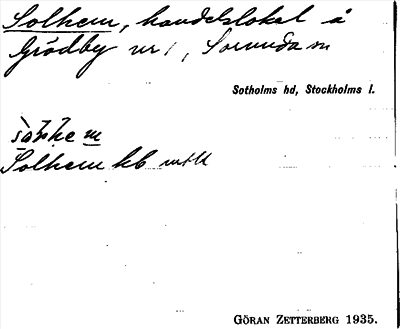 Solhem, handelslokal å
Grödby nr 1, Sorunda sn
Sotholms hd, Stockholms l.
Solhem hb
GÖRAN ZETTERBERG 1935.